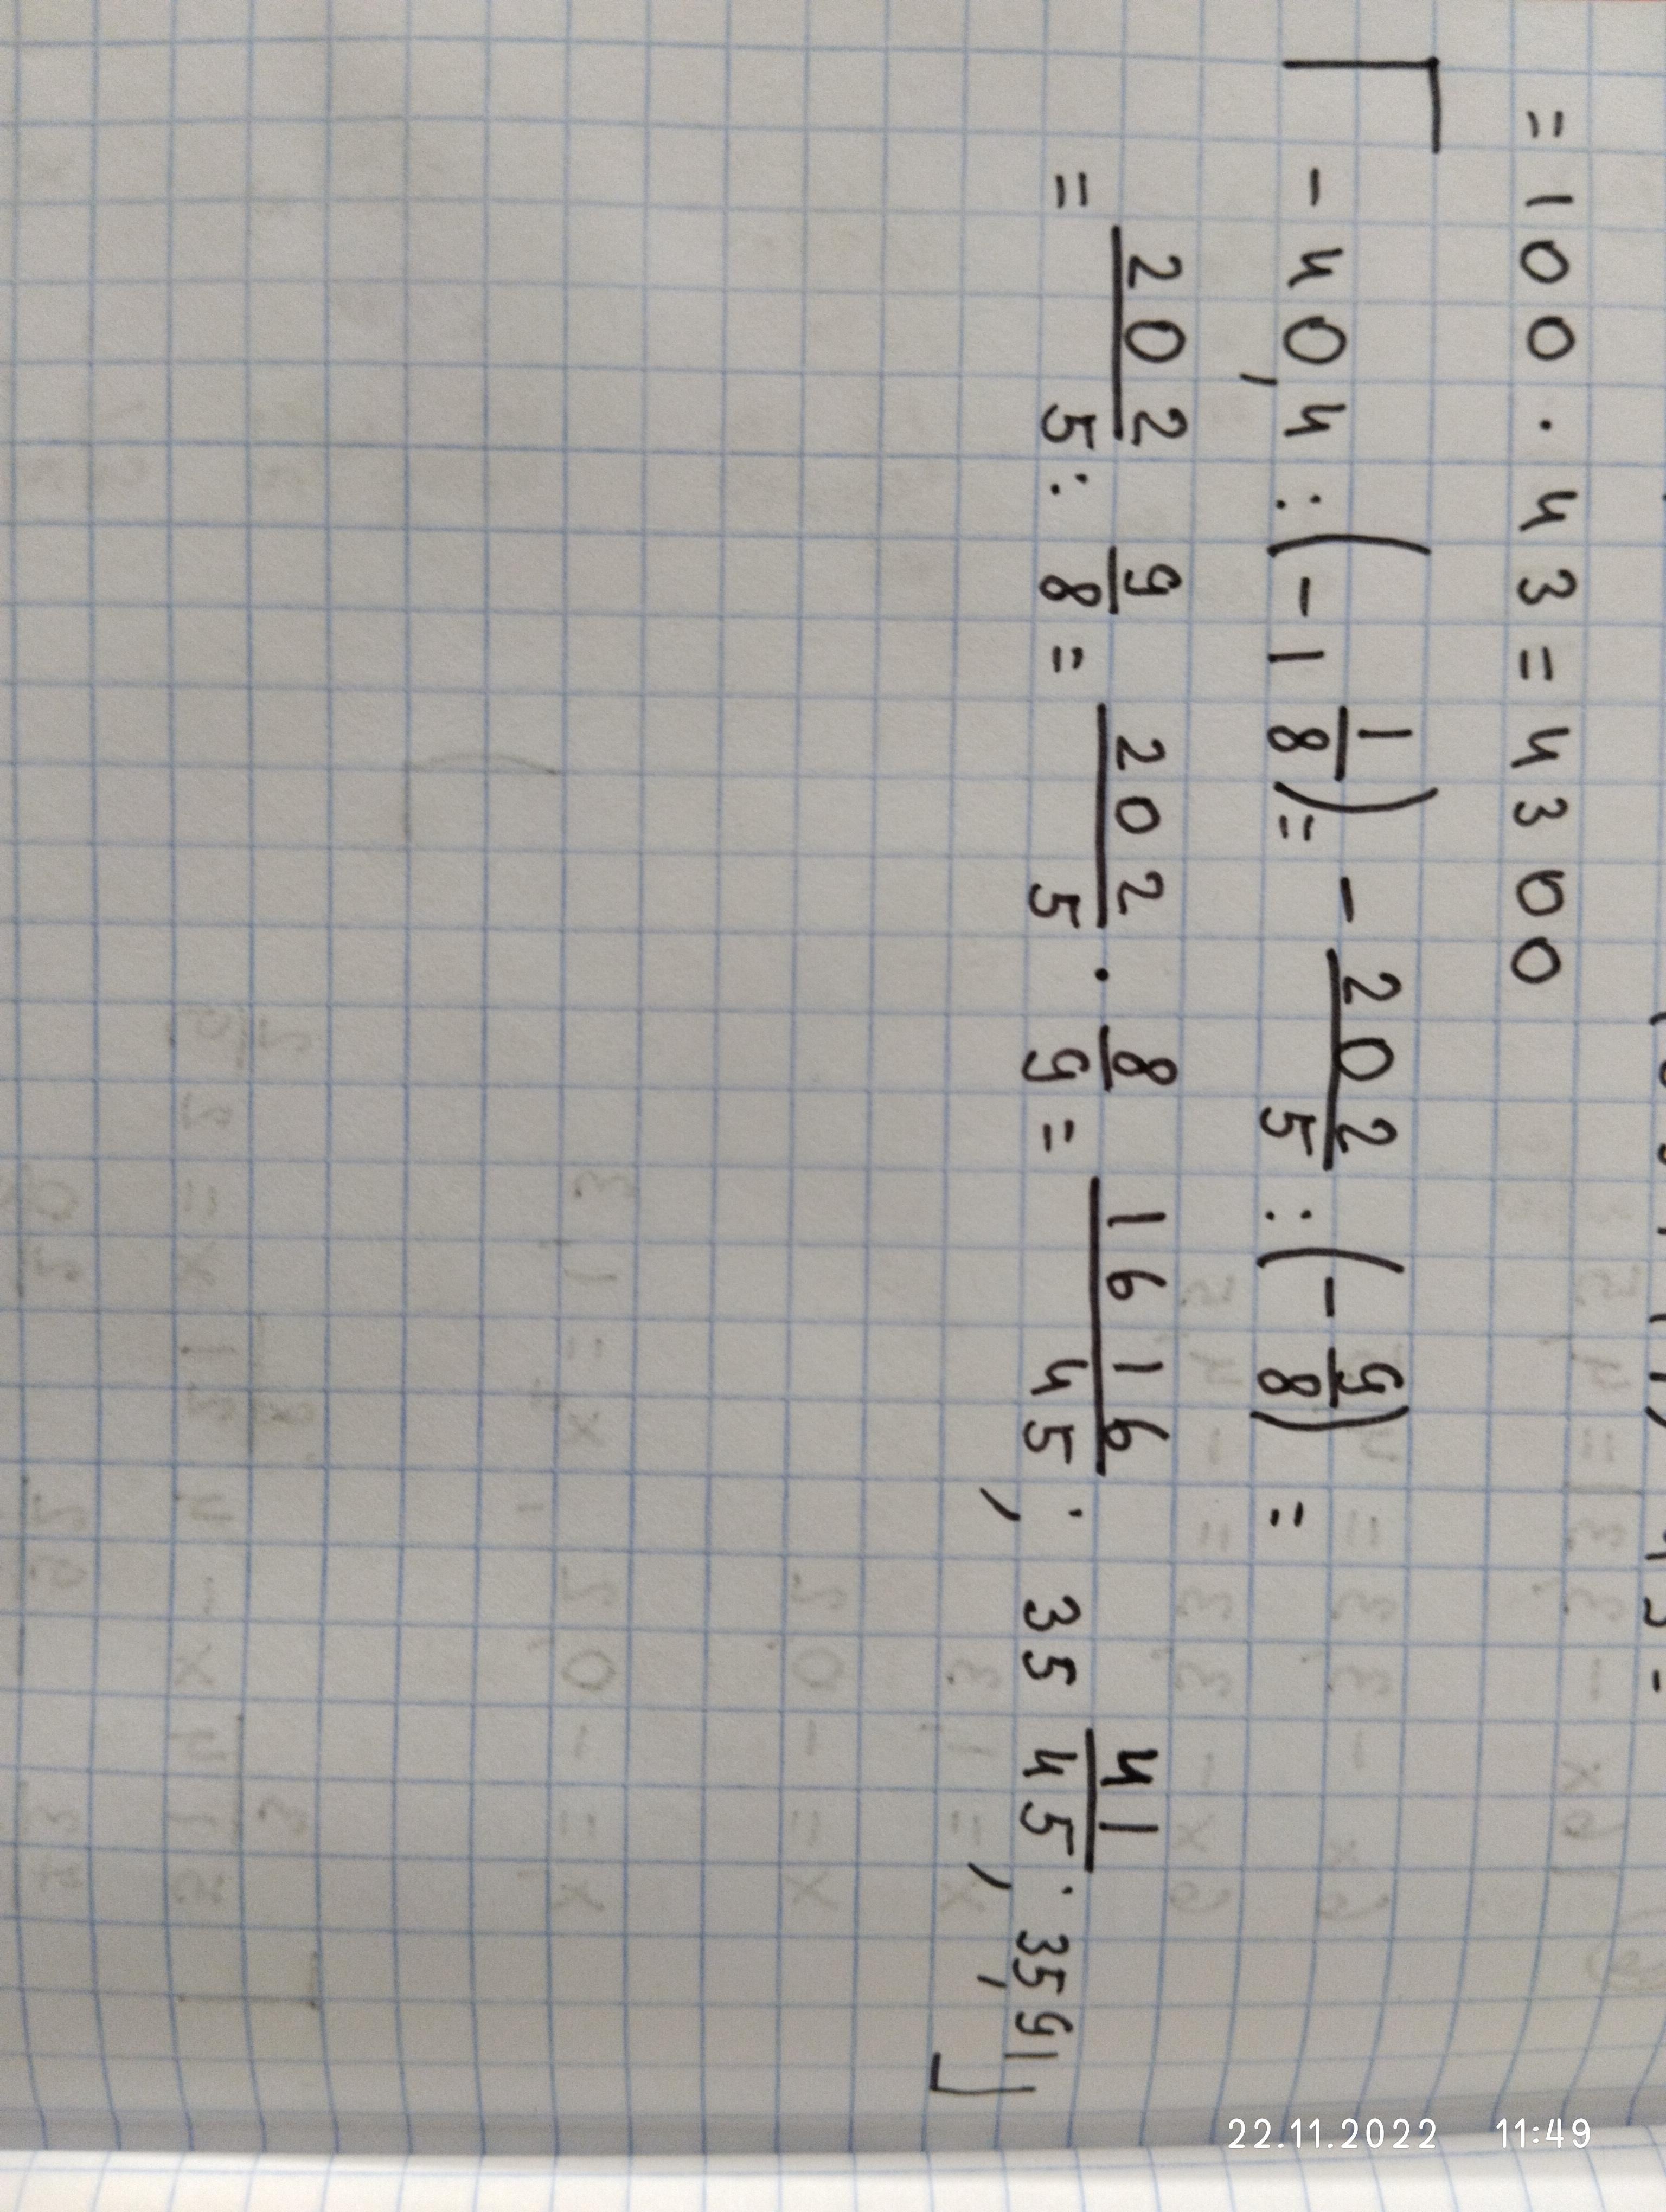 = 100 · 43 = 4300
- 40,4 : (- 1 1/8) = - 202/5 : (- 9/8) =
= 202/5 : 9/8 = 202/5 · 8/9 = 1616/45 ; 35 41/45 ; 35,91
22.11.2022 11:49